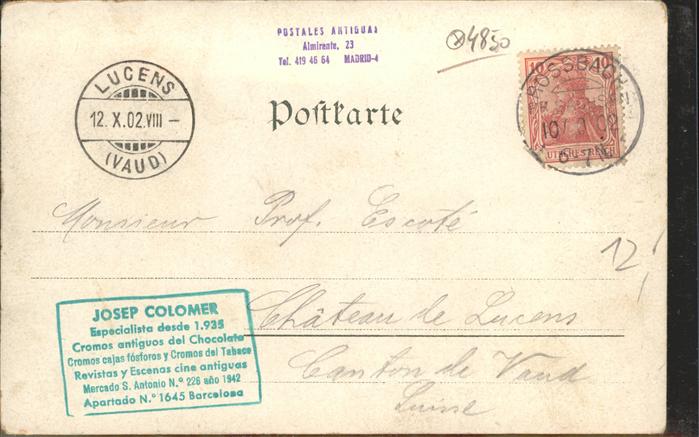 POSTALES ANTIGUAS
Almirante, 23
Tel. 419 46 64 MADRID-4
4850
LUCENS
12. X. 02. VIII –
(VAUD)
Poſtkarte
10 10
ROSSBACH
10 02
6-7N
DEUTSCHES REICH
Monsieur Prof. Escoté
12
Château de Lucens
Canton de Vaud
Suisse
JOSEP COLOMER
Especialista desde 1.935
Cromos antiguos del Chocolate
Cromos cajas fósforos y Cromos del Tabaco
Revistas y Escenas cine antiguas
Mercado S. Antonio N.º 226 año 1942
Apartado N.º 1645 Barcelona